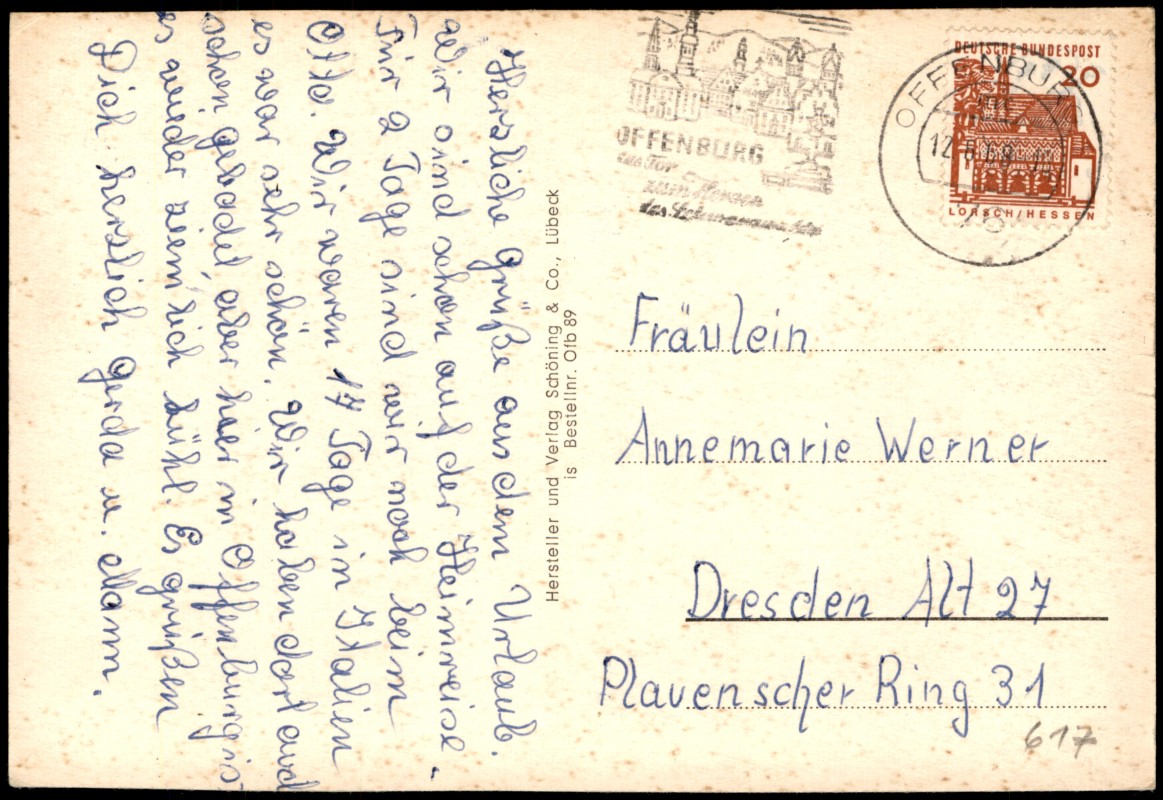 Herzliche Grüße aus dem Urlaub.
Wir sind schon auf der Heimreise.
Für 2 Tage sind wir noch beim
Otto. Wir waren 14 Tage in Italien
es war sehr schön. Wir haben dort auch
schon gebadet aber hier in Offenburg is
es wieder ziemlich kühl. Es grüßen
Dich herzlich Gerda u. Mann.
Hersteller und Verlag Schöning & Co., Lübeck
is Bestellnr. Ofb 89
OFFENBURG
das Tor
zum
OFFENBURG
12.6.68
DEUTSCHE BUNDESPOST
20
LORSCH/HESSEN
Fräulein
Annemarie Werner
Dresden Alt 27
Plauenscher Ring 31
617